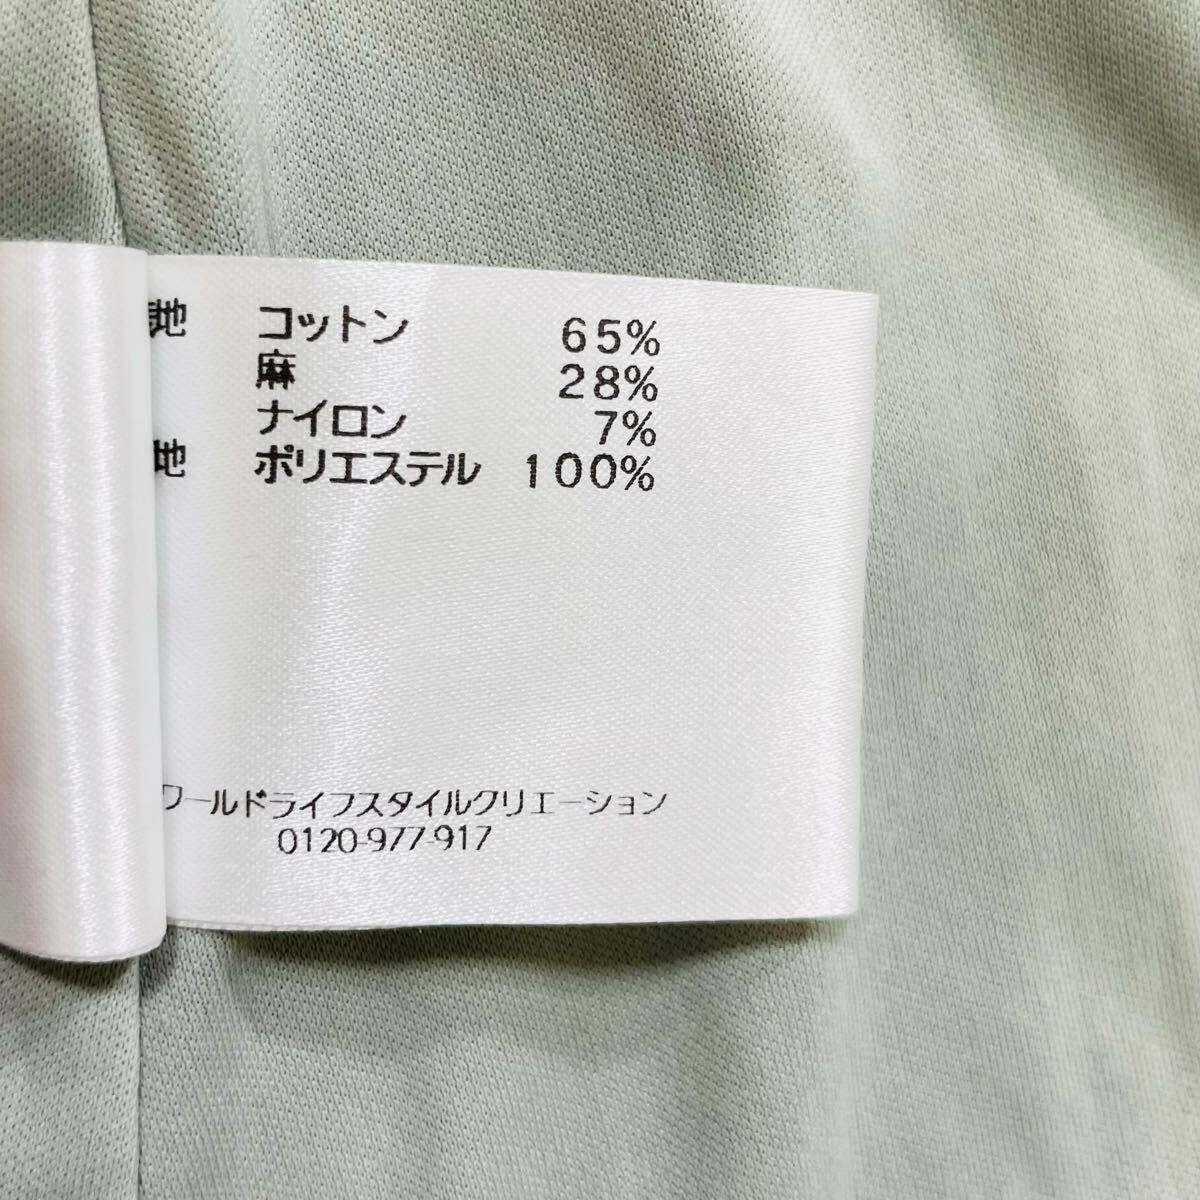 地 コットン 65%
麻 28%
ナイロン 7%
地 ポリエステル 100%
ワールドライフスタイルクリエーション
0120-977-917